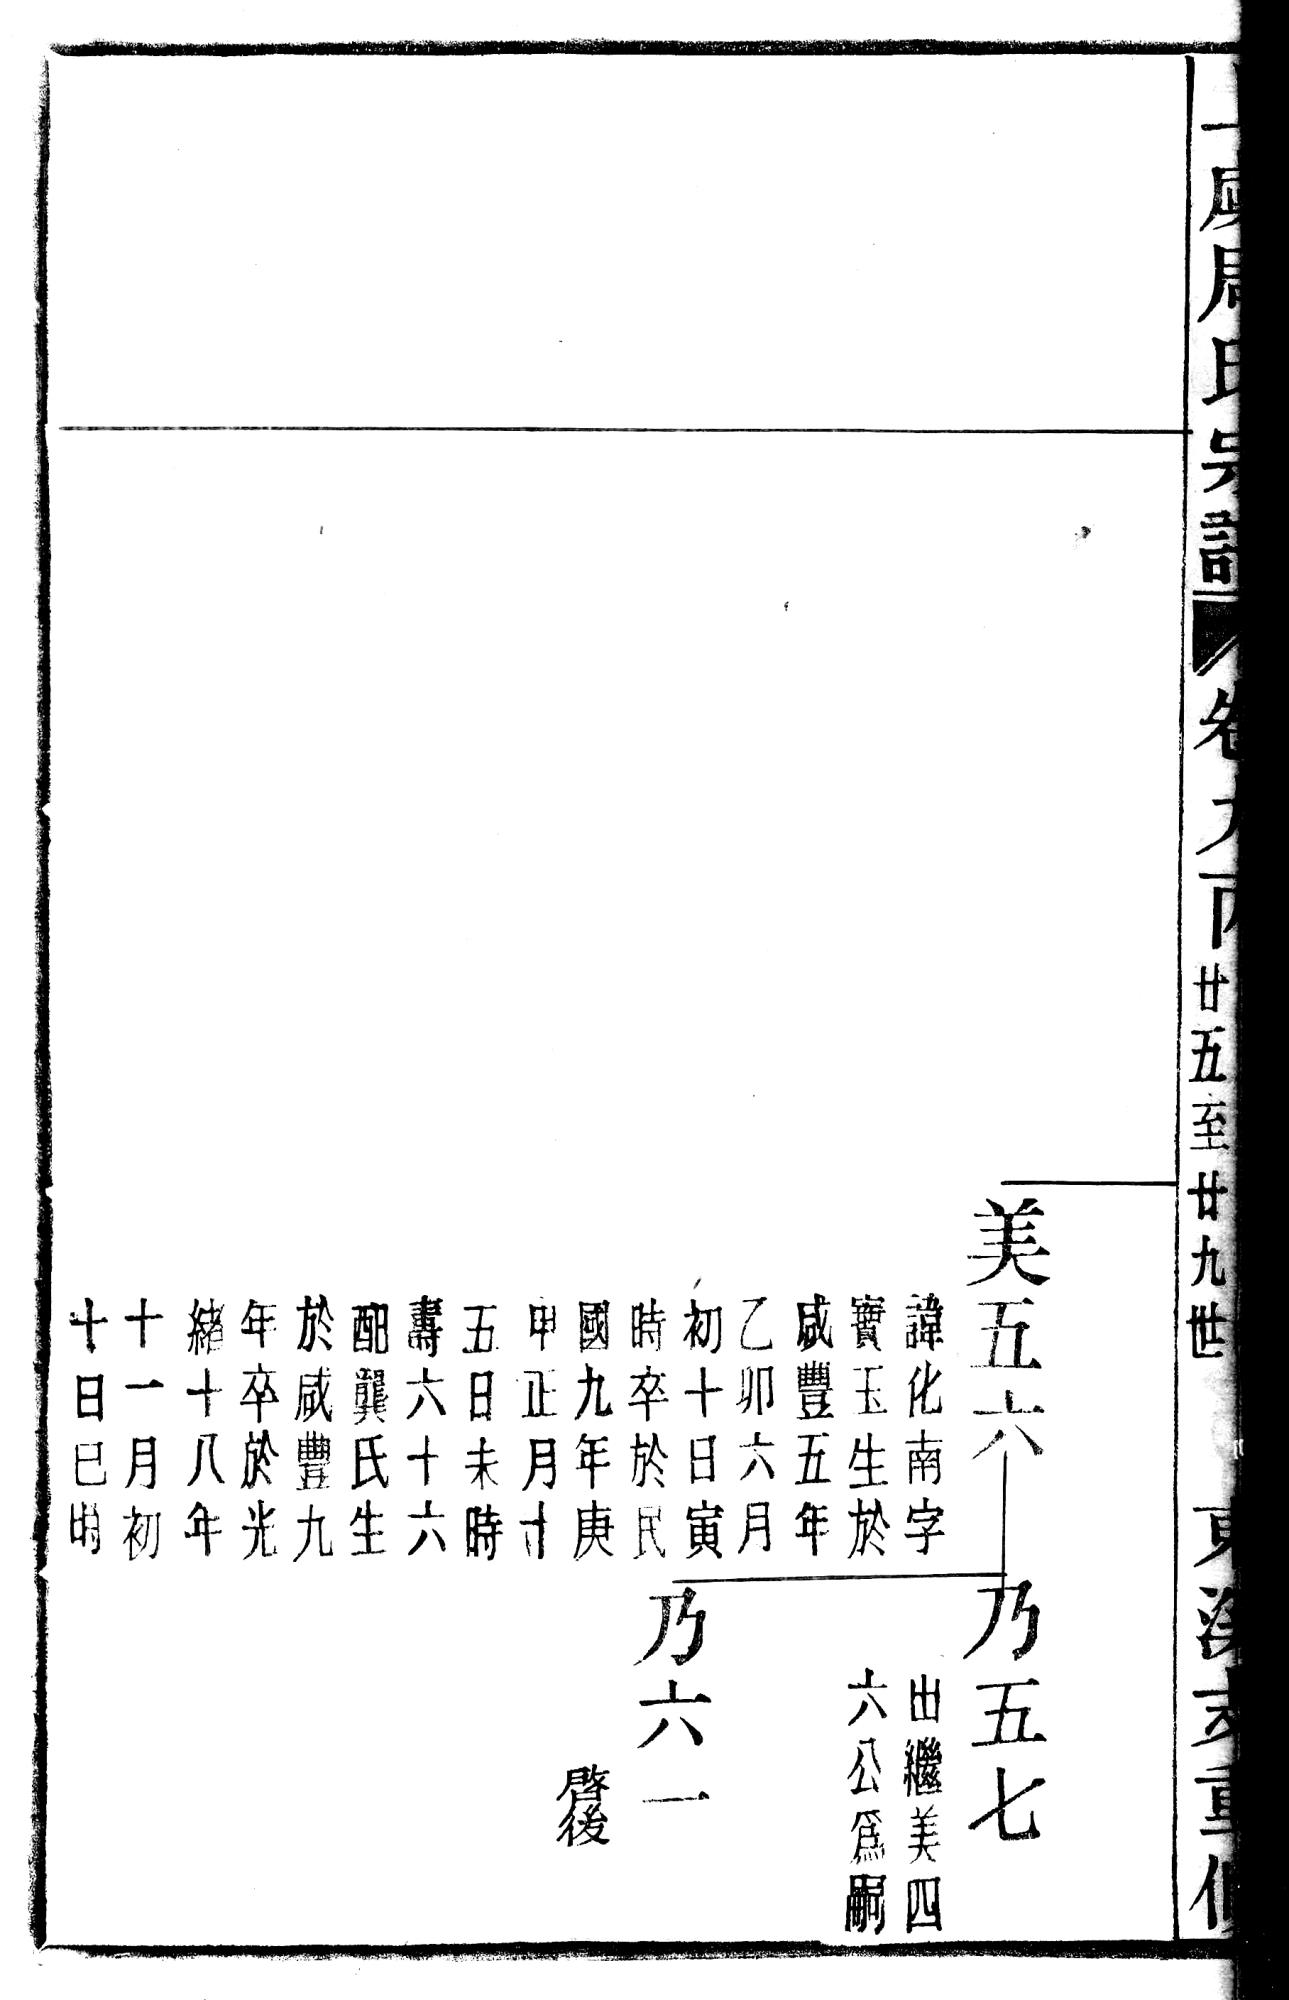 周氏宗譜
卷九丙廿五至廿九世
重修
美五六
諱化南字
寶玉生於
咸豐五年
乙卯六月
初十日寅
時卒於民
國九年庚
申正月廿
五日未時
壽六十六
配龔氏生
於咸豐九
年卒於光
緒十八年
十一月初
十日巳時
乃五七
出繼美四
六公爲嗣
乃六一
啓後